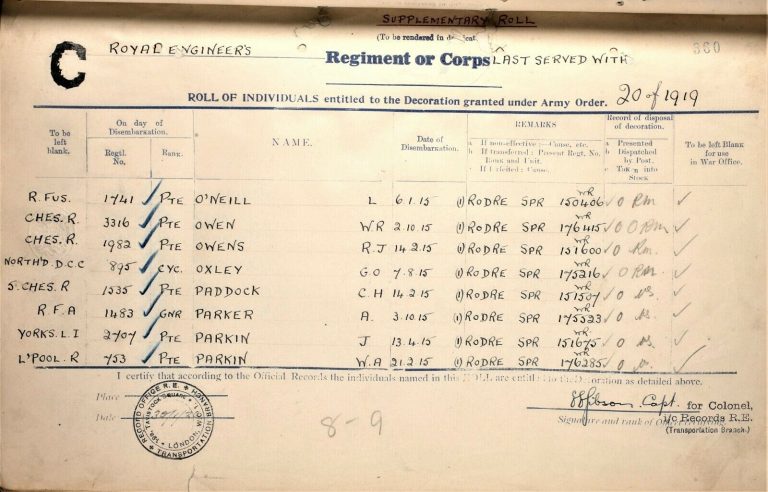 SUPPLEMENTARY ROLL
(To be rendered in
360
C
ROYAL ENGINEERS Regiment or Corps LAST SERVED WITH
ROLL OF INDIVIDUALS entitled to the Decoration granted under Army Order. 20 of 1919
To be left blank. On day of Disembarkation. Regtl. No. Rank. NAME. Date of Disembarkation. REMARKS a If non-effective:—Cause, etc. b If transferred: Present Regt. No. Rank and Unit. c If forfeited: Cause. Record of disposal of decoration. a Presented b Dispatched by Post. c Taken into Stock To be left Blank for use in War Office.
R. FUS. 1741 PTE O'NEILL L 6.1.15 (1) RODRE SPR WR 150406 O RM
CHES. R. 3316 PTE OWEN W R 2.10.15 (1) RODRE SPR WR 176415 O RM
CHES. R. 1982 PTE OWENS R.J 14.2.15 (1) RODRE SPR WR 151600 O RM.
NORTH'D. D.C.C 895 CYC. OXLEY G.O 7.8.15 (1) RODRE SPR WR 175216 O RM.
S. CHES R 1535 PTE PADDOCK C.H 14.2.15 (1) RODRE SPR WR 151507 O
R F A 1483 GNR PARKER A. 3.10.15 (1) RODRE SPR WR 175523 O
YORKS. L.I 2707 PTE PARKIN J 13.4.15 (1) RODRE SPR WR 151675 O
L'POOL. R 753 PTE PARKIN W.A 21.2.15 (1) RODRE SPR WR 176285 O
I certify that according to the Official Records the individuals named in this ROLL are entitled to the Decoration as detailed above.
Place
Date
RECORD OFFICE R.E. TRANSPORTATION BRANCH TAVISTOCK SQUARE LONDON, W.C.
8-9
Capt. for Colonel,
i/c Records R.E.
Signature and rank of Officer
(Transportation Branch.)